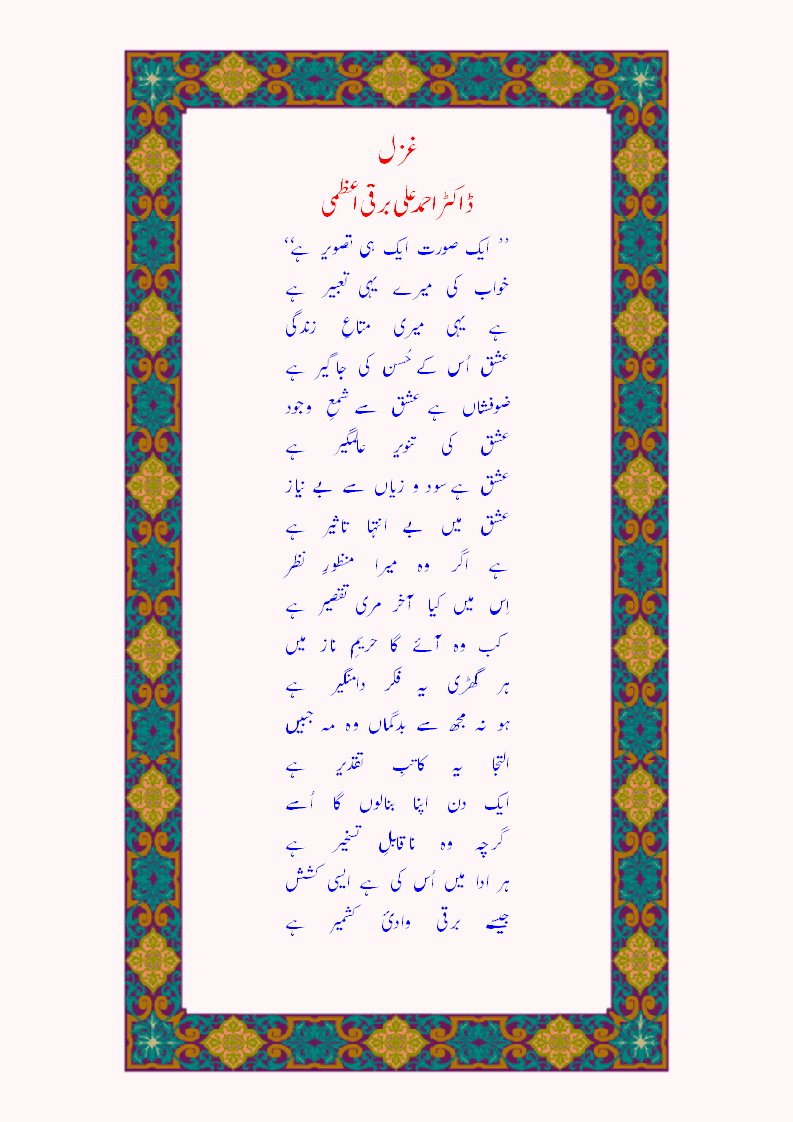 غزل
ڈاکٹر احمد علی برقی اعظمی
’’ ایک صورت ایک ہی تصویر ہے‘‘
خواب کی میرے یہی تعبیر ہے
ہے یہی میری متاعِ زندگی
عشق اُس کے حُسن کی جاگیر ہے
ضوفشاں ہے عشق سے شمعِ وجود
عشق کی تنویر عالمگیر ہے
عشق ہے سود و زیاں سے بے نیاز
عشق میں بے انتہا تاثیر ہے
ہے اگر وہ میرا منظورِ نظر
اِس میں کیا آخر مری تقصیر ہے
کب وہ آئے گا حریمِ ناز میں
ہر گھڑی یہ فکر دامنگیر ہے
ہو نہ مجھ سے بدگماں وہ مہ جبیں
التجا یہ کاتبِ تقدیر ہے
ایک دن اپنا بنالوں گا اُسے
گرچہ وہ ناقابلِ تسخیر ہے
ہر ادا میں اُس کی ہے ایسی کشش
جیسے برقی وادئ کشمیر ہے